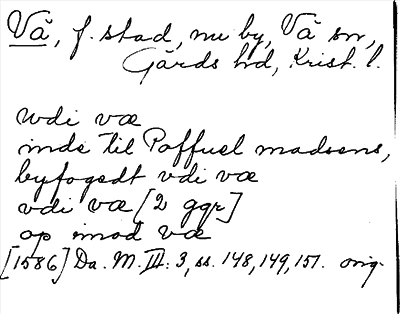 Vä, f. stad, nu by, Vä sn,
Gärds hd, Krist. l.
wdi væ
inde til Poffuel madsens,
byfogedt vdi væ
vdi væ [2 ggr]
op imod væ
[1586] Da. M. III: 3, ss. 148, 149, 151. orig.